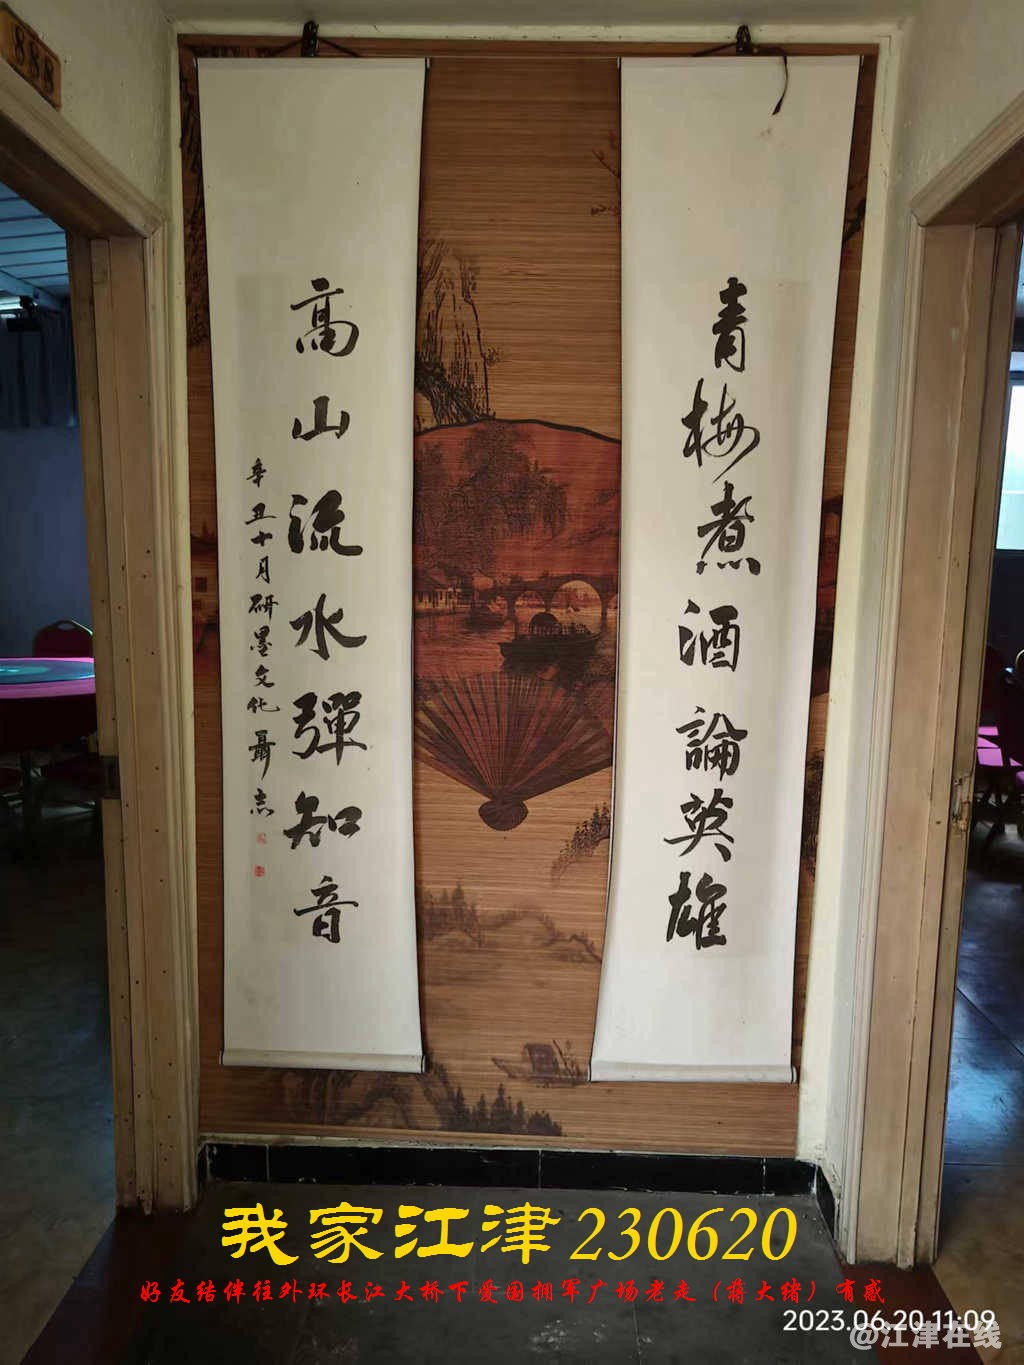 888
青梅煮酒論英雄
高山流水彈知音
辛丑十月研墨文化聶志
我家江津230620
好友结伴往外环长江大桥下爱国拥军广场老走（蒋大绪）有感
2023.06.20 11:09
@江津在线